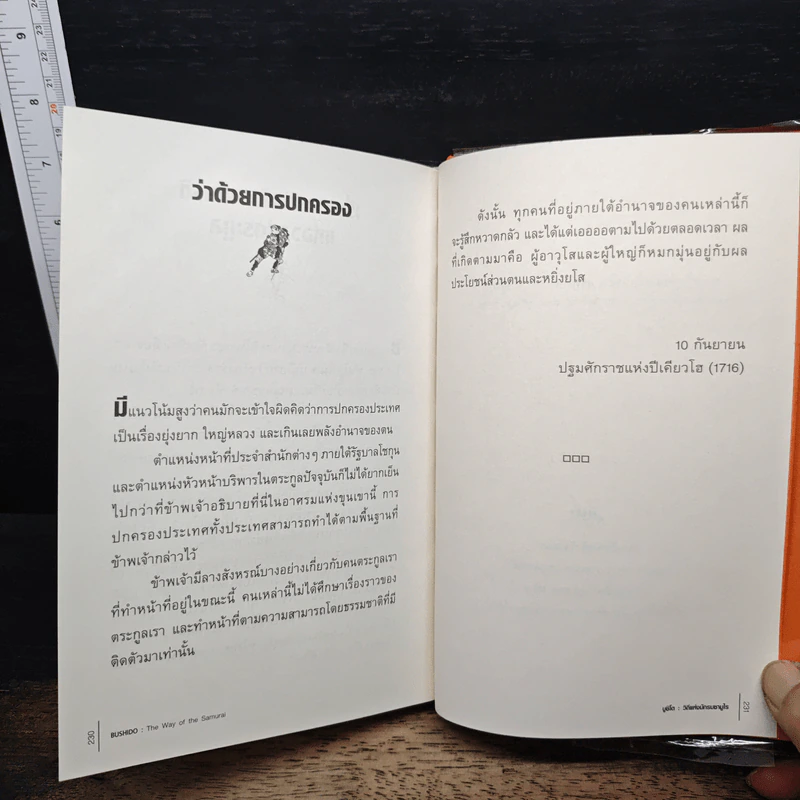 ว่าด้วยการปกครอง
มีแนวโน้มสูงว่าคนมักจะเข้าใจผิดคิดว่าการปกครองประเทศ
เป็นเรื่องยุ่งยาก ใหญ่หลวง และเกินเลยพลังอำนาจของตน
ตำแหน่งหน้าที่ประจำสำนักต่างๆ ภายใต้รัฐบาลโชกุน
และตำแหน่งหัวหน้าบริหารในตระกูลปัจจุบันก็ไม่ได้ยากเย็น
ไปกว่าที่ข้าพเจ้าอธิบายที่นี่ในอาศรมแห่งขุนเขานี้ การ
ปกครองประเทศทั้งประเทศสามารถทำได้ตามพื้นฐานที่
ข้าพเจ้ากล่าวไว้
ข้าพเจ้ามีลางสังหรณ์บางอย่างเกี่ยวกับคนตระกูลเรา
ที่ทำหน้าที่อยู่ในขณะนี้ คนเหล่านี้ไม่ได้ศึกษาเรื่องราวของ
ตระกูลเรา และทำหน้าที่ตามความสามารถโดยธรรมชาติที่มี
ติดตัวมาเท่านั้น
230
BUSHIDO : The Way of the Samurai
ดังนั้น ทุกคนที่อยู่ภายใต้อำนาจของคนเหล่านี้ก็
จะรู้สึกหวาดกลัว และได้แต่เออออตามไปด้วยตลอดเวลา ผล
ที่เกิดตามมาคือ ผู้อาวุโสและผู้ใหญ่ก็หมกมุ่นอยู่กับผล
ประโยชน์ส่วนตนและหยิ่งยโส
10 กันยายน
ปฐมศักราชแห่งปีเคียวโฮ (1716)
บูชิโด : วิถีแห่งนักรบซามูไร
231
9
8
7